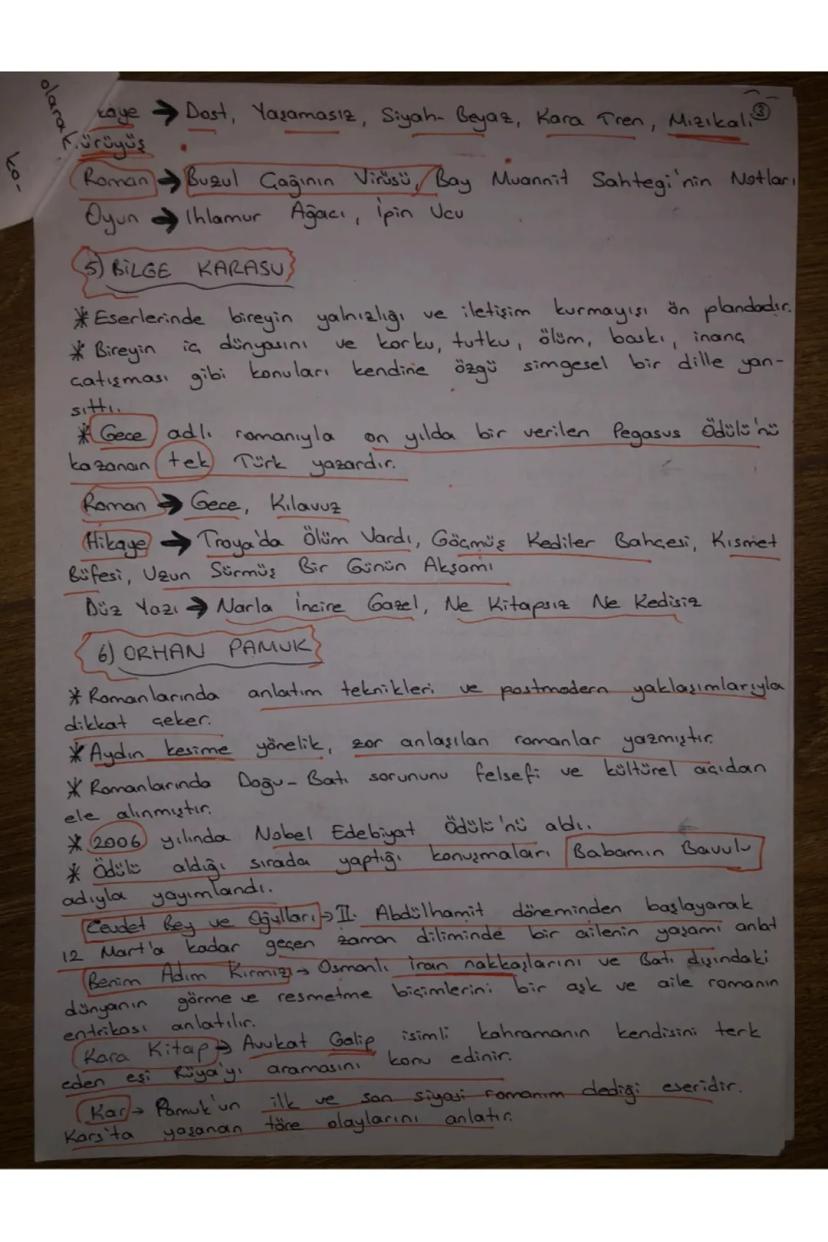 olarak
ko-
kaye → Dost, Yaşamasız, Siyah-Beyaz, Kara Tren, Mızıkalı ③
Yürüyüş
Roman → Buzul Çağının Virüsü, Bay Muannit Sahtegi'nin Notları
Oyun → Ihlamur Ağacı, İpin Ucu
5) BİLGE KARASU
* Eserlerinde bireyin yalnızlığı ve iletişim kurmayışı ön plandadır.
* Bireyin iç dünyasını ve korku, tutku, ölüm, baskı, inanç
çatışması gibi konuları kendine özgü simgesel bir dille yan-
sıttı.
* Gece adlı romanıyla on yılda bir verilen Pegasus Ödülü'nü
kazanan tek Türk yazardır.
Roman → Gece, Kılavuz
Hikaye → Troya'da Ölüm Vardı, Göçmüş Kediler Bahçesi, Kısmet
Büfesi, Uzun Sürmüş Bir Günün Akşamı
Düz Yazı → Narla İncire Gazel, Ne Kitapsız Ne Kedisiz
6) ORHAN PAMUK
* Romanlarında anlatım teknikleri ve postmodern yaklaşımlarıyla
dikkat çeker.
* Aydın kesime yönelik, zor anlaşılan romanlar yazmıştır.
* Romanlarında Doğu-Batı sorununu felsefi ve kültürel açıdan
ele alınmıştır.
* 2006 yılında Nobel Edebiyat Ödülü'nü aldı.
* Ödülü aldığı sırada yaptığı konuşmaları Babamın Bavulu
adıyla yayımlandı.
Cevdet Bey ve Oğulları → II. Abdülhamit döneminden başlayarak
12 Mart'a kadar geçen zaman diliminde bir ailenin yaşamı anlat
Benim Adım Kırmızı → Osmanlı İran nakkaşlarını ve Batı dışındaki
dünyanın görme ve resmetme biçimlerini bir aşk ve aile romanın
entrikası anlatılır.
Kara Kitap → Avukat Galip isimli kahramanın kendisini terk
eden eşi Rüya'yı aramasını konu edinir.
Kar → Pamuk'un ilk ve son siyasi romanım dediği eseridir.
Kars'ta yaşanan töre olaylarını anlatır.